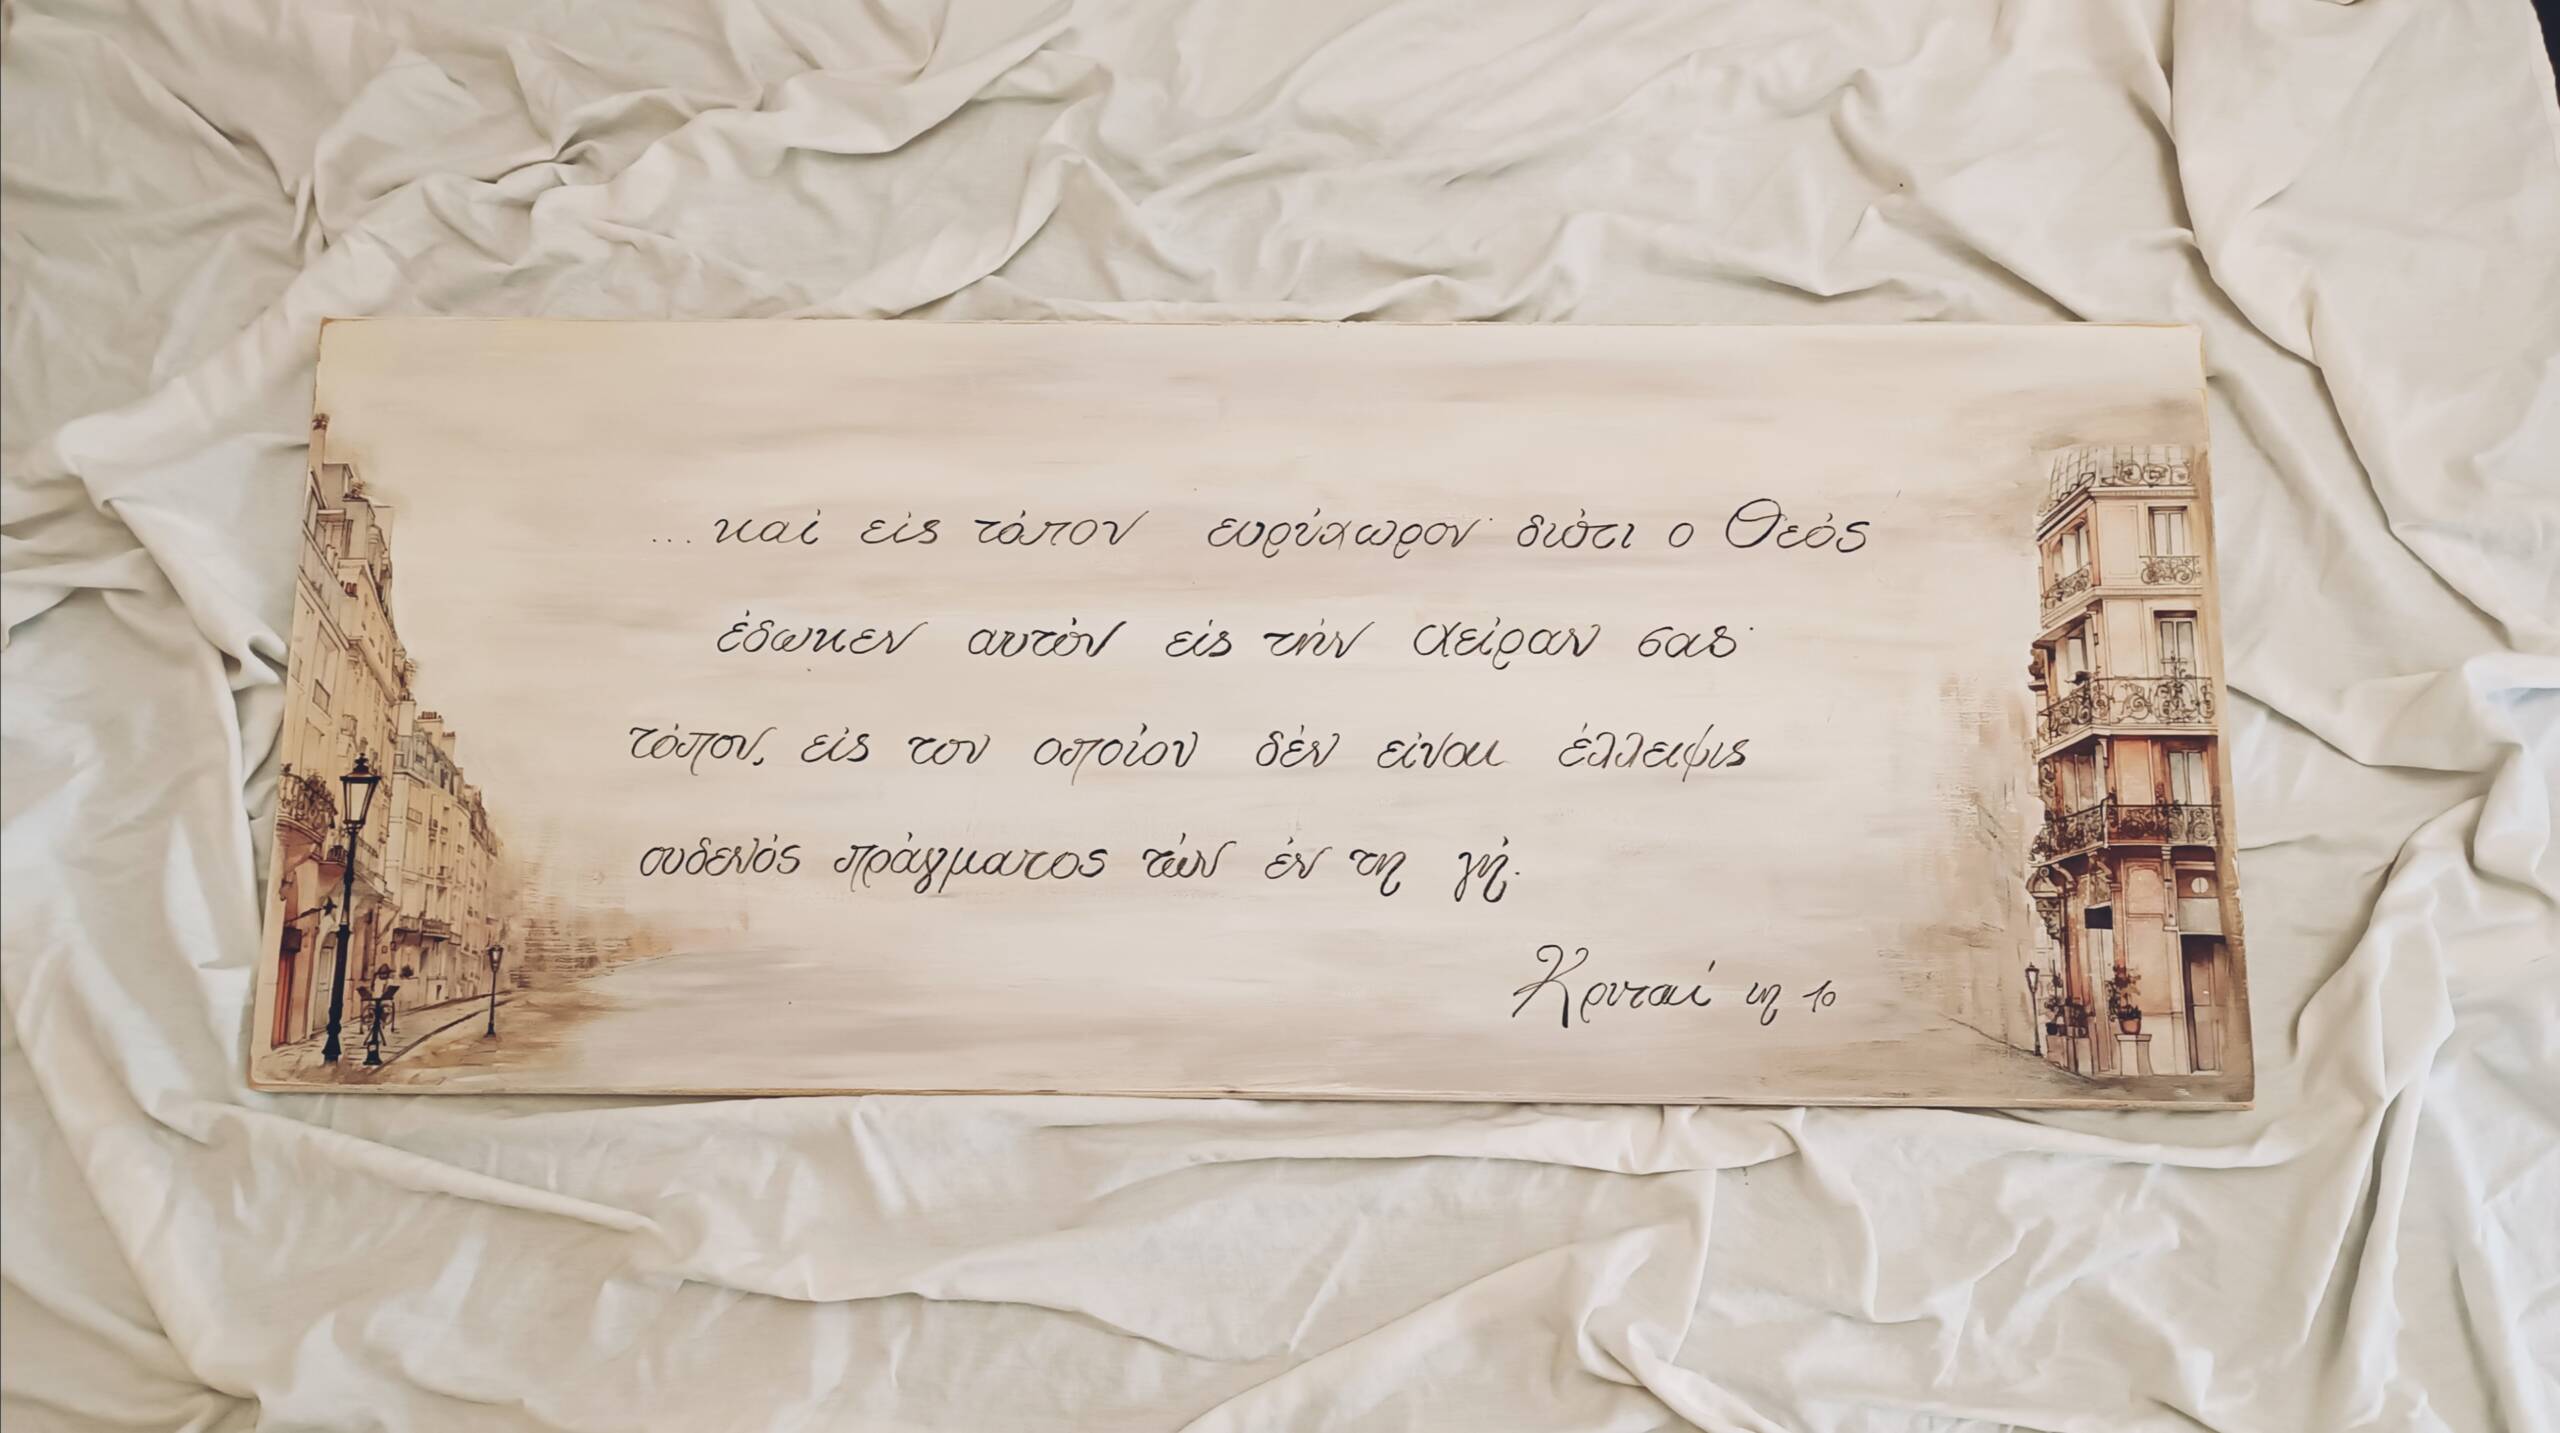 ...καί είς τόπον ευρύχωρον· διότι ο Θεός
έδωκεν αυτόν είς τήν χείραν σας·
τόπον, είς τον οποίον δέν είναι έλλειψις
ουδενός πράγματος τών έν τη γή.
Κριταί ιη 10